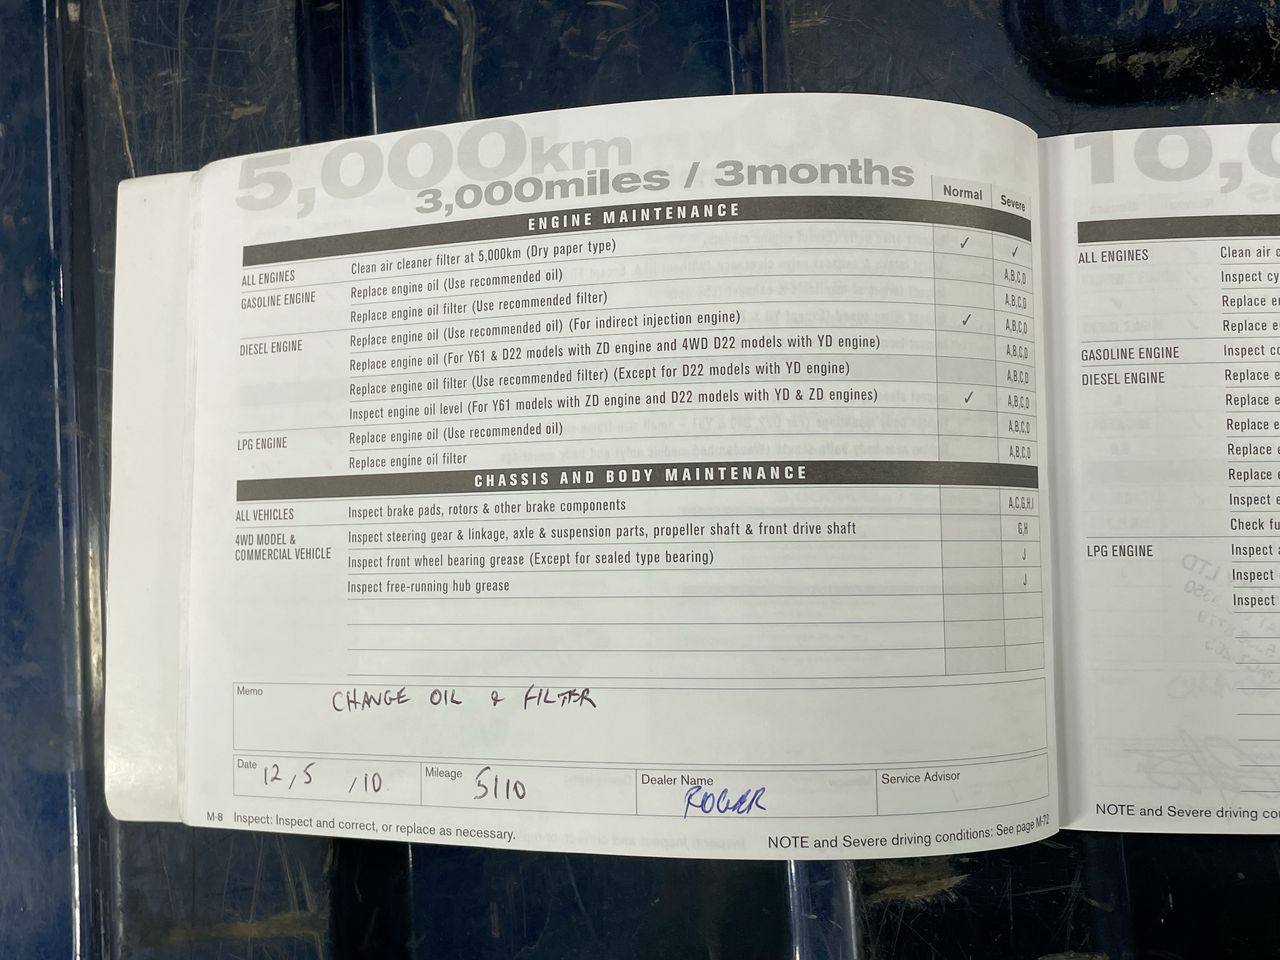 5,000km
3,000miles / 3months
Normal Severe
ENGINE MAINTENANCE
ALL ENGINES Clean air cleaner filter at 5,000km (Dry paper type) ✓ ✓
GASOLINE ENGINE Replace engine oil (Use recommended oil) A,B,C,D
Replace engine oil filter (Use recommended filter) A,B,C,D
DIESEL ENGINE Replace engine oil (Use recommended oil) (For indirect injection engine) ✓ A,B,C,D
Replace engine oil (For Y61 & D22 models with ZD engine and 4WD D22 models with YD engine) A,B,C,D
Replace engine oil filter (Use recommended filter) (Except for D22 models with YD engine) A,B,C,D
Inspect engine oil level (For Y61 models with ZD engine and D22 models with YD & ZD engines) ✓ A,B,C,D
LPG ENGINE Replace engine oil (Use recommended oil) A,B,C,D
Replace engine oil filter A,B,C,D
CHASSIS AND BODY MAINTENANCE
ALL VEHICLES Inspect brake pads, rotors & other brake components A,C,G,H,I
4WD MODEL & COMMERCIAL VEHICLE Inspect steering gear & linkage, axle & suspension parts, propeller shaft & front drive shaft G,H
Inspect front wheel bearing grease (Except for sealed type bearing) J
Inspect free-running hub grease J
Memo CHANGE OIL & FILTER
Date 12/5/10 Mileage 5110 Dealer Name ROGER Service Advisor
M-8 Inspect: Inspect and correct, or replace as necessary.
NOTE and Severe driving conditions: See page M-72
10,0
ALL ENGINES Clean air c
Inspect cy
Replace e
Replace e
GASOLINE ENGINE Inspect co
DIESEL ENGINE Replace e
Replace e
Replace e
Replace e
Replace e
Inspect e
Check fu
LPG ENGINE Inspect
Inspect
Inspect
NOTE and Severe driving co